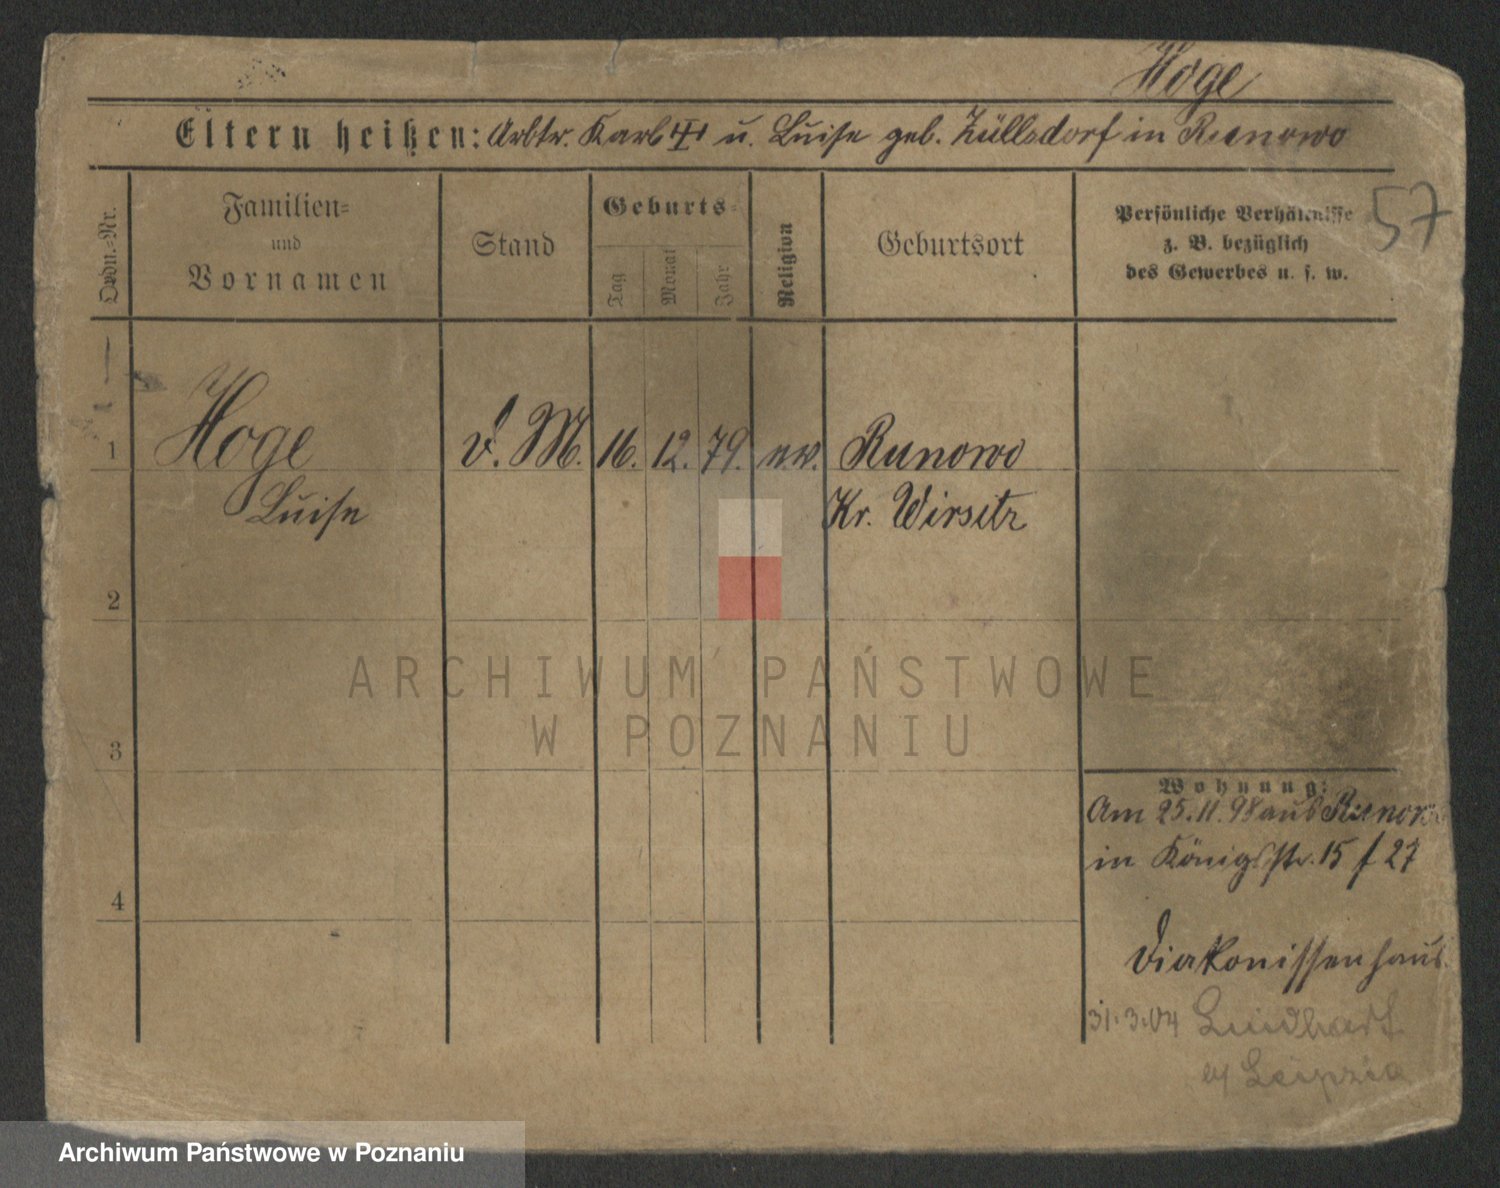 Hoge
Eltern heißen: Arbtr. Karl u. Luise geb. Züllsdorf in Runowo
57
Ordn.-Nr.
Familien-
und
Vornamen
Stand
Geburts-
Tag
Monat
Jahr
Religion
Geburtsort
Persönliche Verhältnisse
z. B. bezüglich
des Gewerbes u. s. w.
1 Hoge D. M. 16. 12. 79. ev. Runowo
Luise
Kr. Wirsitz
2
3
4
Wohnung:
Am 25.11.98 aus Runowo
in Königsstr. 15 f 27
Diakonissenhaus
31.3.04
Leipzig
ARCHIWUM PAŃSTWOWE
W POZNANIU
Archiwum Państwowe w Poznaniu